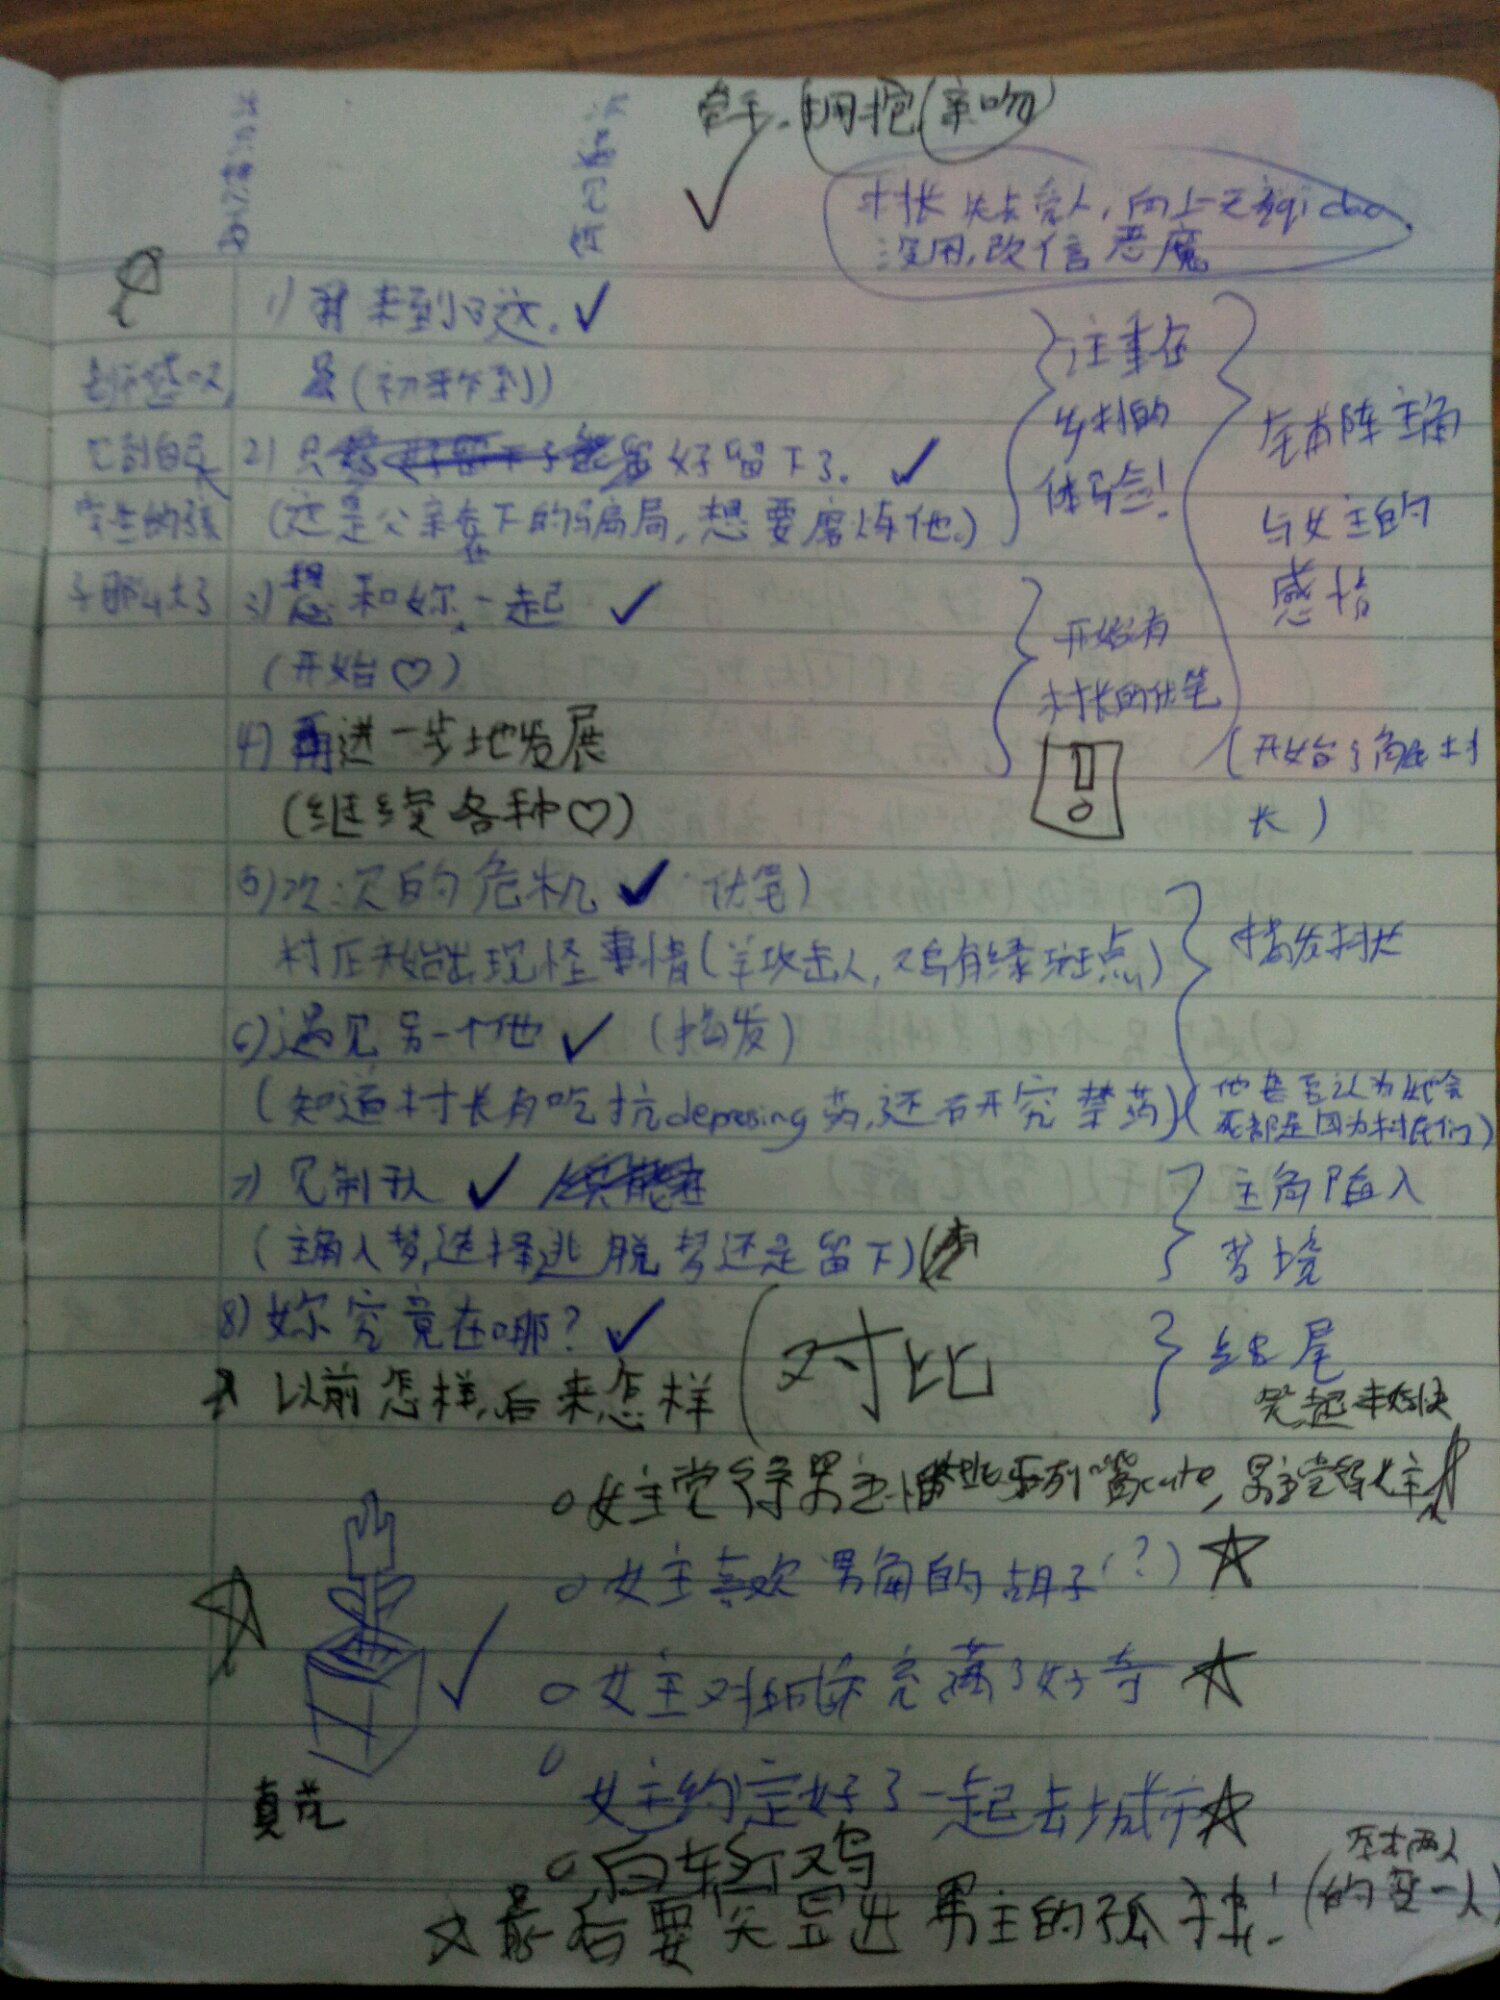 牵手、拥抱(亲吻)
村长失去爱人,向上天qi dao
没用,改信恶魔
1) 来到了这.
(初来乍到)
注重在
乡村的
体验!
2) 只好留下了.
(这是父亲在下的骗局,想要磨炼他.)
在前阵主角
与女主的
感情
3) 想和妳一起
(开始♡)
开始有
村长的伏笔
4) 再进一步地发展
(继续各种♡)
(开始了解村
长)
5) 次次的危机 伏笔)
村庄开始出现怪事情(羊攻击人,鸡有绿斑点)
揭发村长
6) 遇见另一个他 (揭发)
(知道村长有吃抗depressing药,还研究禁药)
(他甚至认为她会
死都是因为村民们)
7) 见制
(主角入梦,选择逃脱梦还是留下)
主角陷入
梦境
8) 妳究竟在哪?
以前怎样,后来怎样
对比
结尾
笑起来
女主觉得男主 cute, 男主觉得女主
女主喜欢男角的胡子(?)
女主对城市充满了好奇
女主约定好了一起去城市
真花
白斩鸡
最后要突显出男主的孤独!
(原本两人
的变一人)